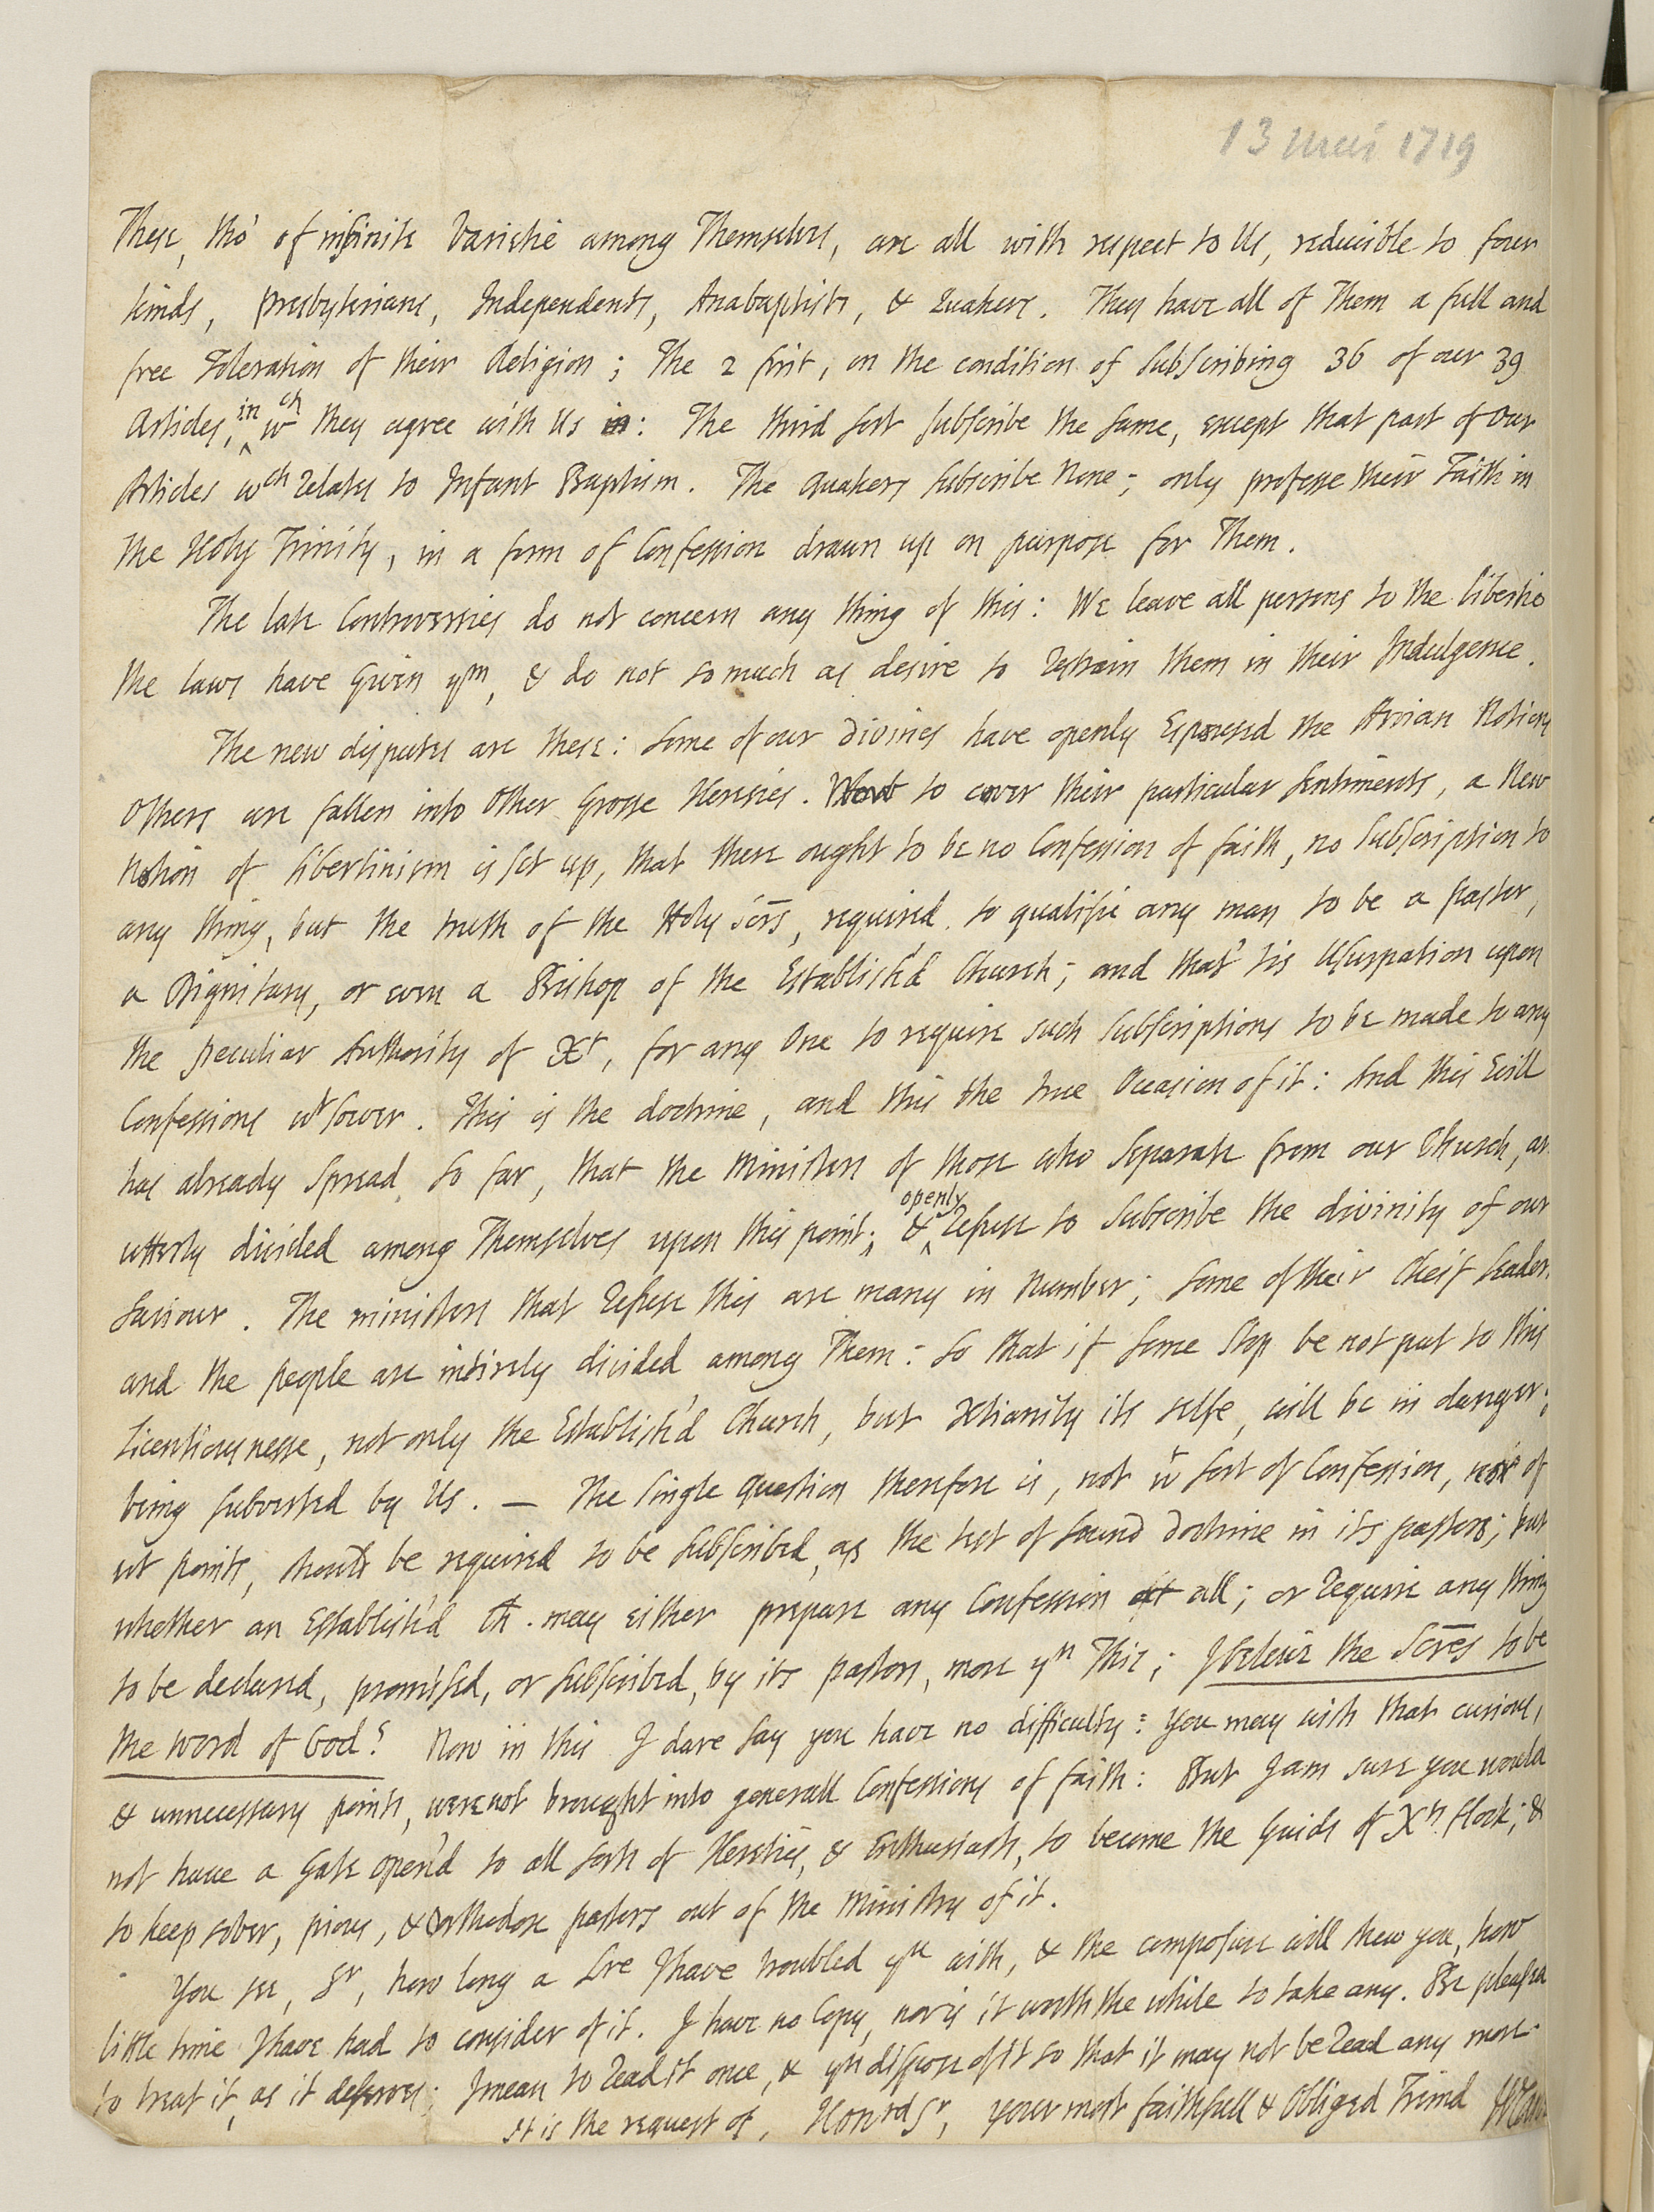 13 Mai 1719
These, tho' of infinite Varietie among Themselves, are all with respect to Us, reducible to four
kinds, Presbyterians, Independents, Anabaptists, & Quakers. They have all of Them a full and
free Toleration of their Religion; The 2 first, on the condition of Subscribing 36 of our 39
Articles, in wch they agree with Us in: The third sort subscribe the same, except that part of our
Articles wch relates to Infant Baptism. The Quakers subscribe None; only professe their Faith in
the Holy Trinity, in a form of Confession drawn up on purpose for Them.
The late Controversies do not concern any thing of this: We leave all persons to the libertie
the laws have given ym, & do not so much as desire to restrain them in their Indulgence.
The new disputes are these: Some of our divines have openly Espoused the Arian Notions
Others are fallen into other Grosse Heresies. Now to cover their particular sentiments, a New
Notion of libertinism is set up, that there ought to be no Confession of faith, no subscription to
any thing, but the truth of the Holy Scrs, required to qualifie any man to be a pastor,
a Dignitary, or even a Bishop of the Establish'd Church; and that 'tis Usurpation upon
the peculiar Authority of Xt, for any One to require such subscriptions to be made to any
Confessions wtsoever. This is the doctrine, and this the true Occasion of it: And this Evill
has already spread so far, that the Ministers of those who separate from our Church, are
utterly divided among Themselves upon this point; & openly refuse to subscribe the divinity of our
Saviour. The ministers that refuse this are many in Number; some of their Cheif leaders
and the people are intirely divided among Them: So that if some stop be not put to this
Licentiousnesse, not only the Establish'd Church, but Xtianity its selfe, will be in danger of
being subverted by Us. — The single Question therefore is, not wt sort of Confession, nor of
wt points, should be required to be subscribed, as the test of sound doctrine in its pastors; but
whether an Establish'd Ch. may either prepare any Confession at all; or require any thing
to be declared, promised, or subscribed, by its pastors, more yn This; I beleive the Scres to be
the word of God? Now in this I dare say you have no difficulty: you may wish that curious,
& unnecessary points, were not brought into generall Confessions of faith: But I am sure you would
not have a Gate open'd to all sorts of Heretics, & Enthusiasts, to become the Guids of Xts flock; &
to keep sober, pious, & Orthodox pastors out of the Ministry of it.
You see, Sr, how long a Lre I have troubled yu with, & the composure will shew you, how
little time I have had to consider of it. I have no Copy, nor is it worth the while to take any. Be pleased
to treat it, as it deserves; I mean to read it once, & yn dispose of it so that it may not be read any more.
It is the request of, Honrd Sr, your most faithfull & Obliged Friend